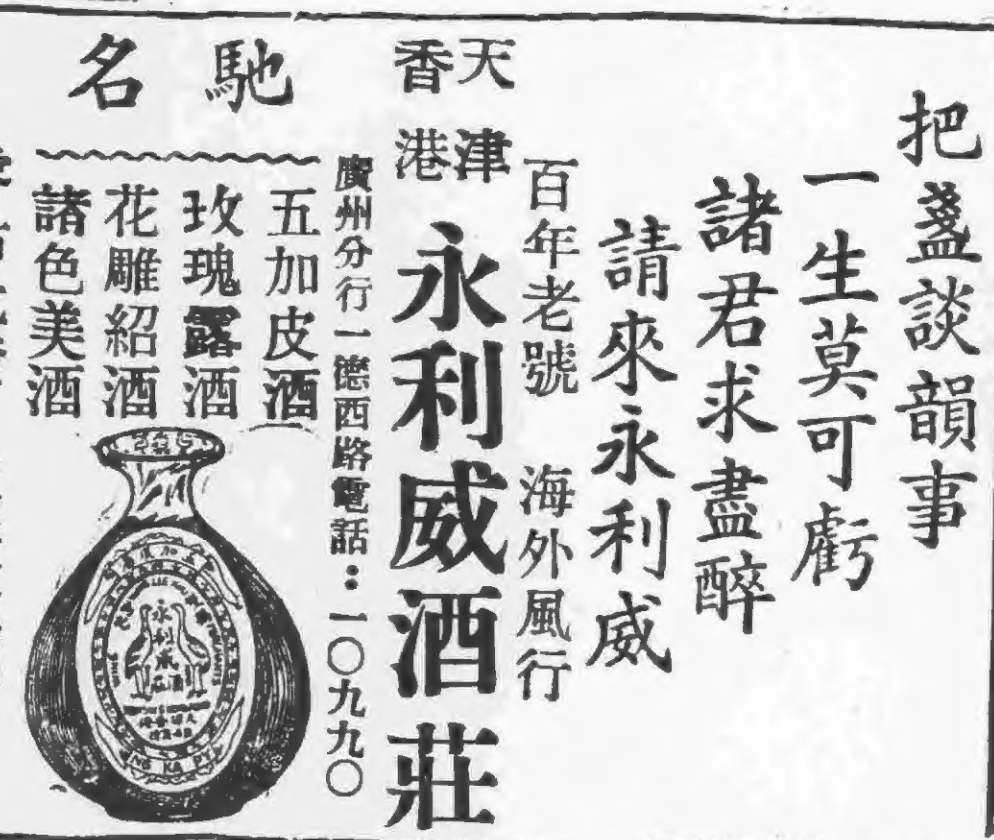 把盞談韻事
一生莫可虧
諸君求盡醉
請來永利威
百年老號 海外風行
天津
香港
永利威酒莊
廣州分行一德西路電話：一〇九九〇
馳名
五加皮酒
玫瑰露酒
花雕紹酒
諸色美酒
永利威
酒莊